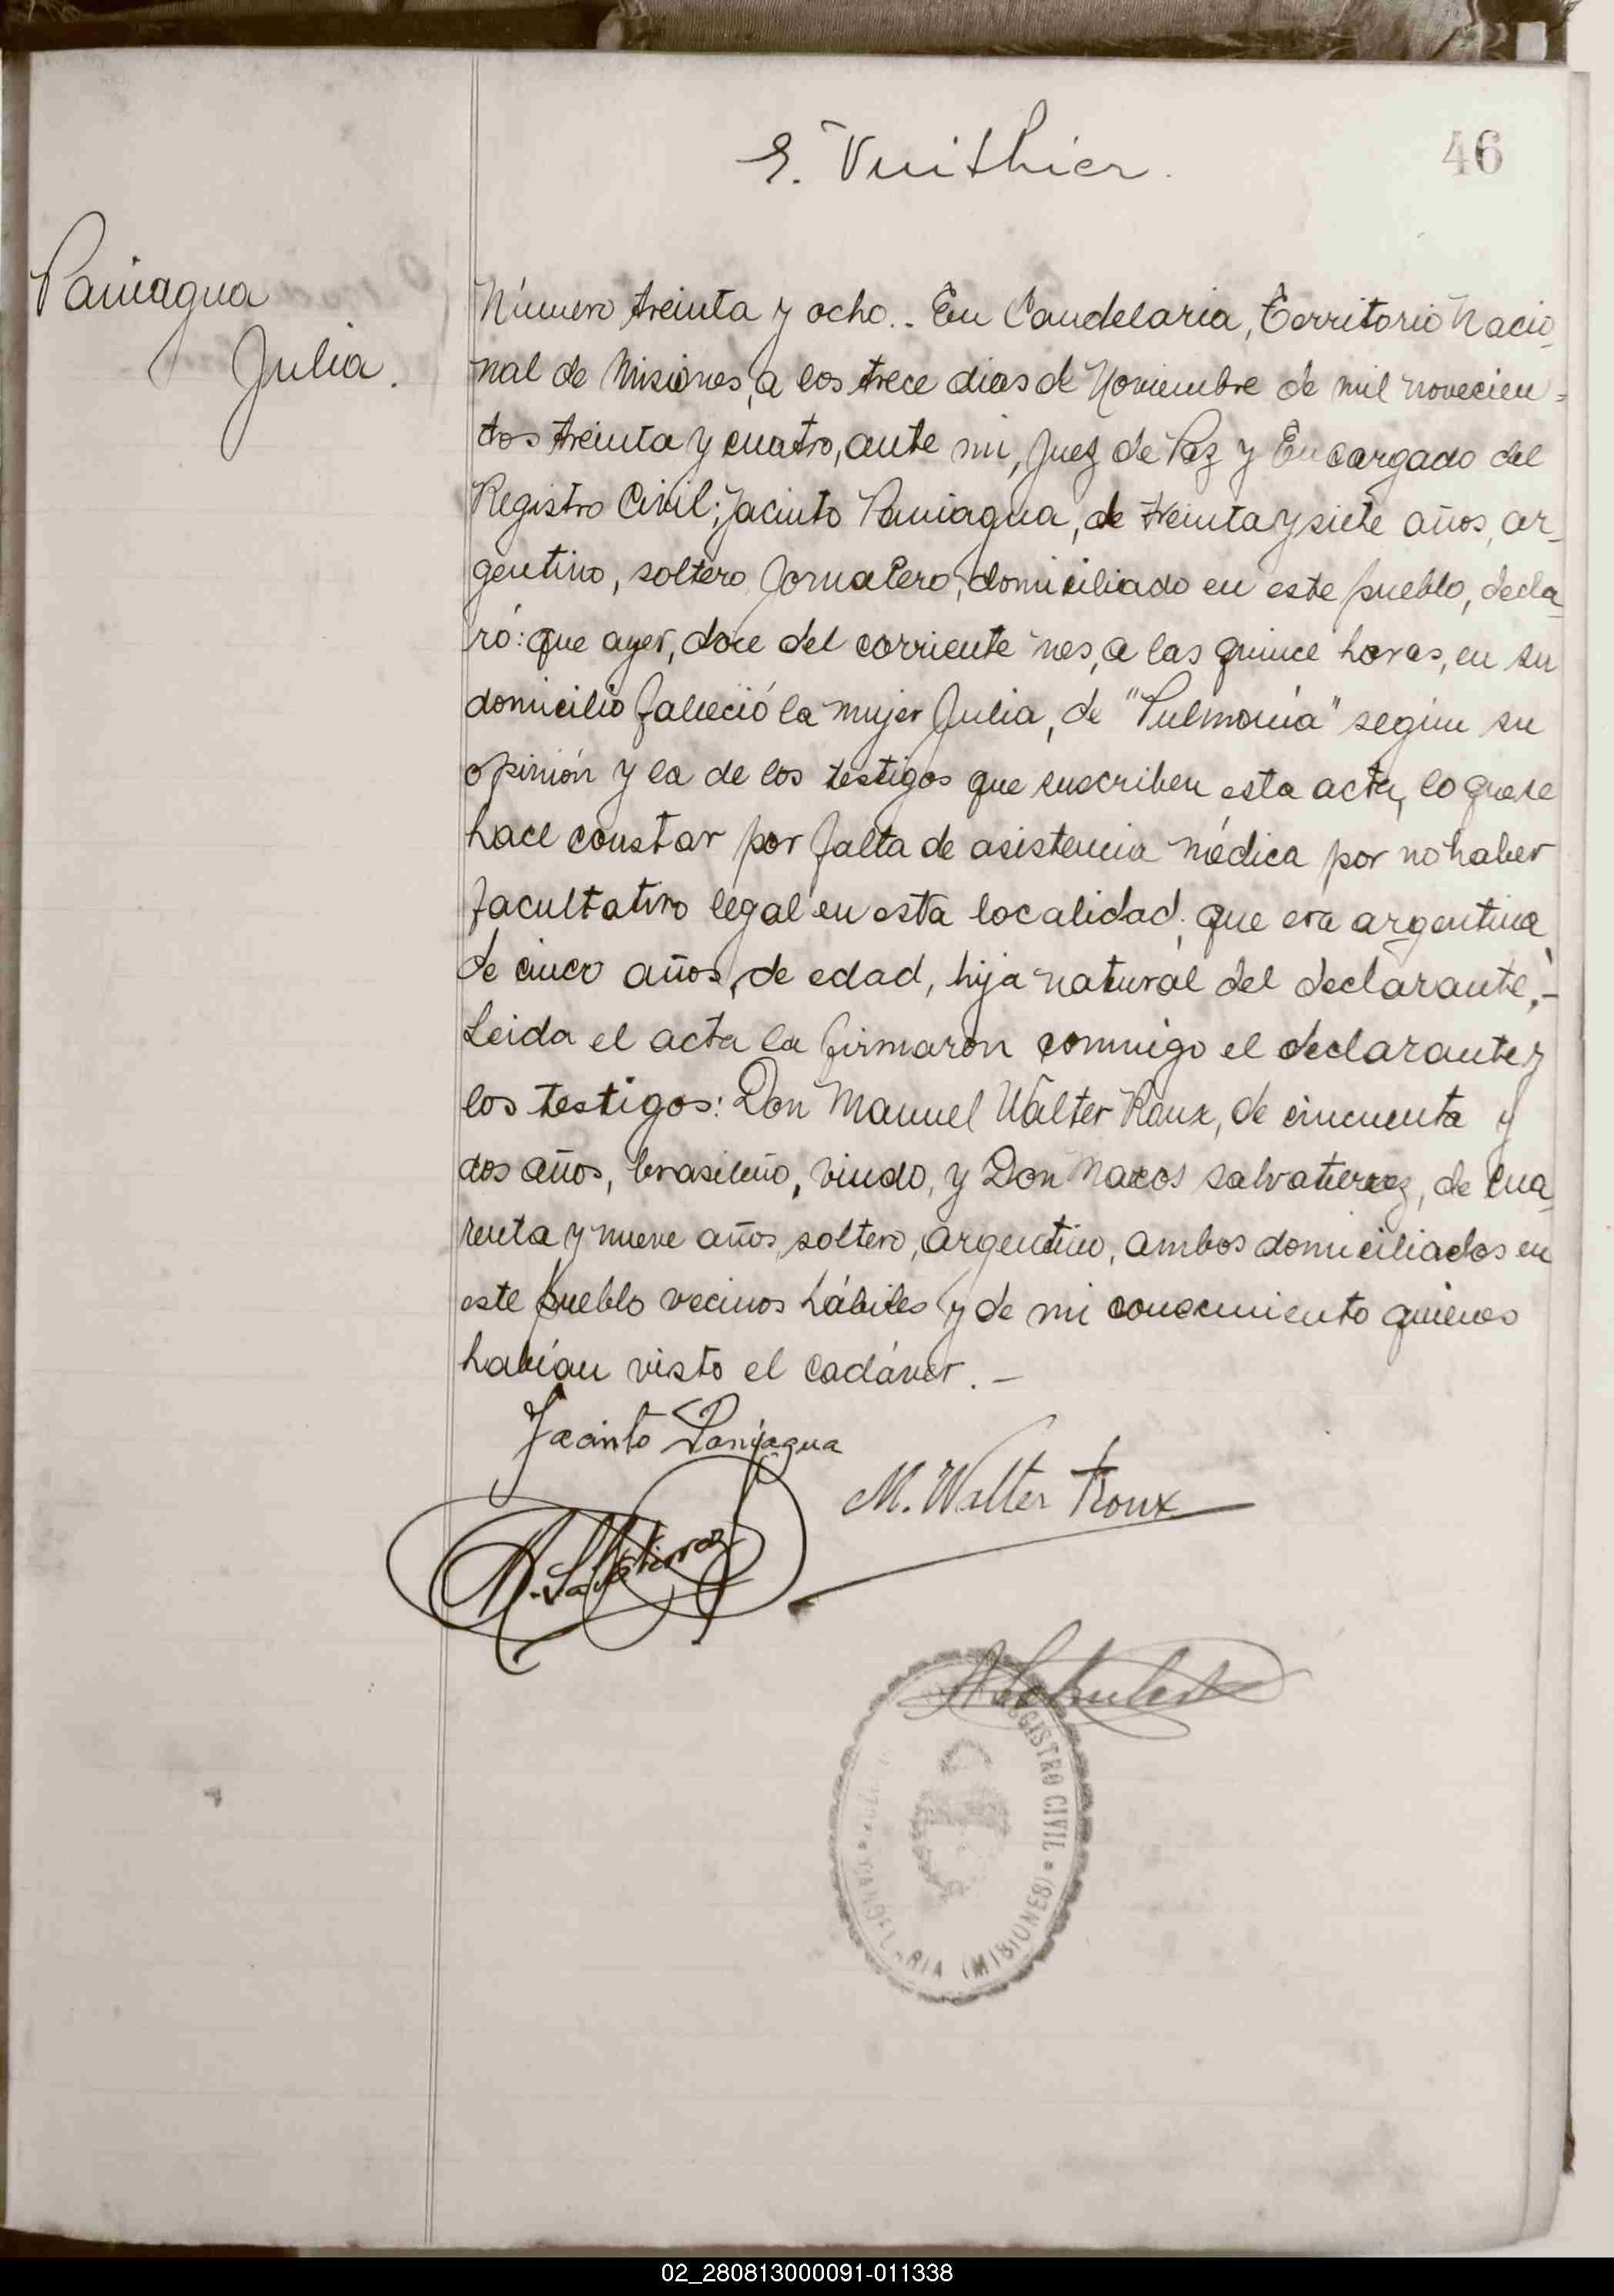 46
E. Vuithier.
Paniagua
Julia.
Número treinta y ocho.. En Candelaria, Territorio Nacio_
nal de Misiones, a los trece dias de Noviembre de mil novecien=
tos treinta y cuatro, ante mi, Juez de Paz y Encargado del
Registro Civil; Jacinto Paniagua, de treinta y siete años, ar_
gentino, soltero, Jornalero, domiciliado en este pueblo, decla_
ró: que ayer, doce del corriente mes, a las quince horas, en su
domicilio falleció la mujer Julia, de "Pulmonía" según su
opinión y la de los testigos que suscriben esta acta, lo que se
hace constar por falta de asistencia médica por no haber
facultativo legal en esta localidad; que era argentina,
de cinco años, de edad, hija natural del declarante.-
Leida el acta la firmaron conmigo el declarante y
los testigos: Don Manuel Walter Roux, de cincuenta y
dos años, brasileño, viudo, y Don Salvatierraz, de cua_
renta y nueve años, soltero, argentino, ambos domiciliados en
este pueblo vecinos hábiles y de mi conocimiento quienes
habían visto el cadáver.-
Jacinto Paniagua
M. Walter Roux
M. Salvatierraz
REGISTRO CIVIL
CANDELARIA (MISIONES)
02_280813000091-011338